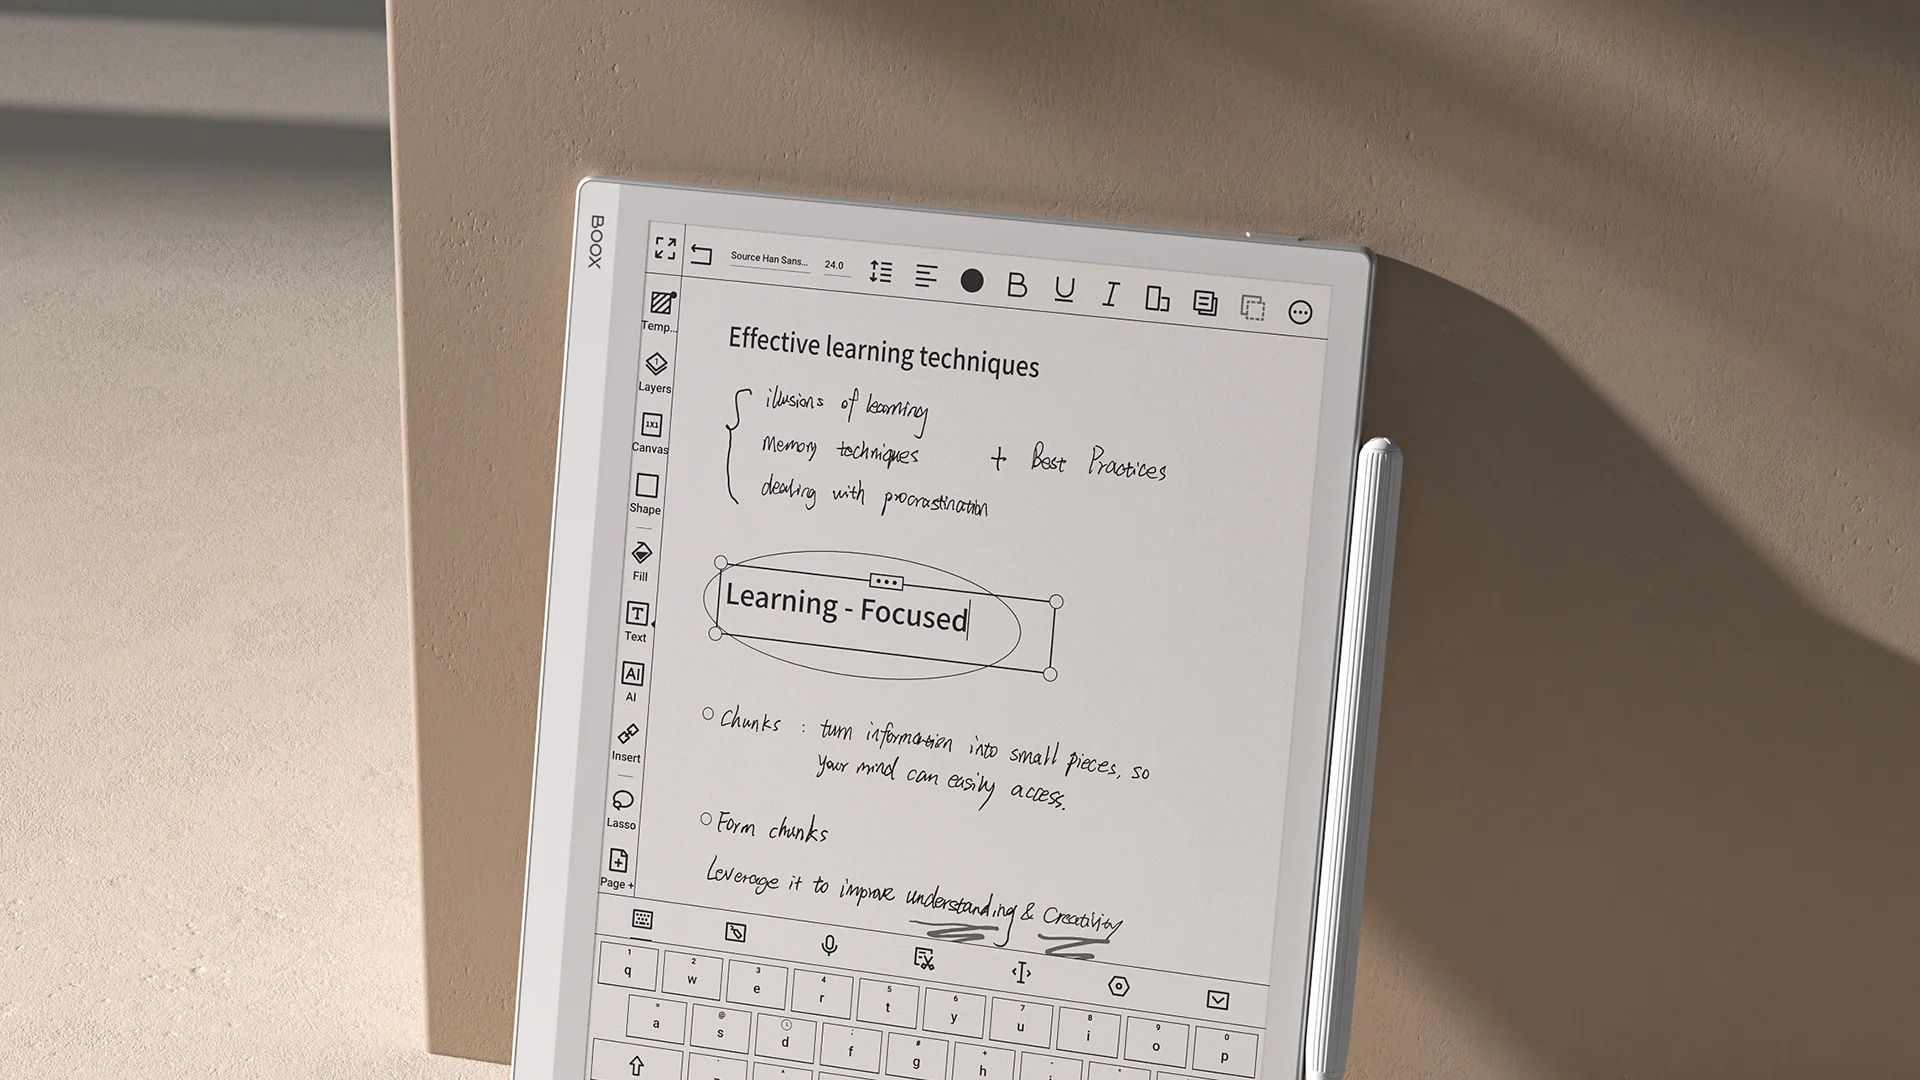 BOOX
Source Han Sans... 24.0 B U I
Temp...
1
Layers
1X1
Canvas
Shape
Fill
T
Text
AI
AI
Insert
Lasso
Page +
Effective learning techniques
illusions of learning
memory techniques + Best Practices
dealing with procrastination
Learning - Focused
Chunks : turn information into small pieces, so
your mind can easily access.
Form chunks
Leverage it to improve understanding & Creativity
1 2 3 4 5 6 7 8 9 0
q w e r t y u i o p
a s d f g h